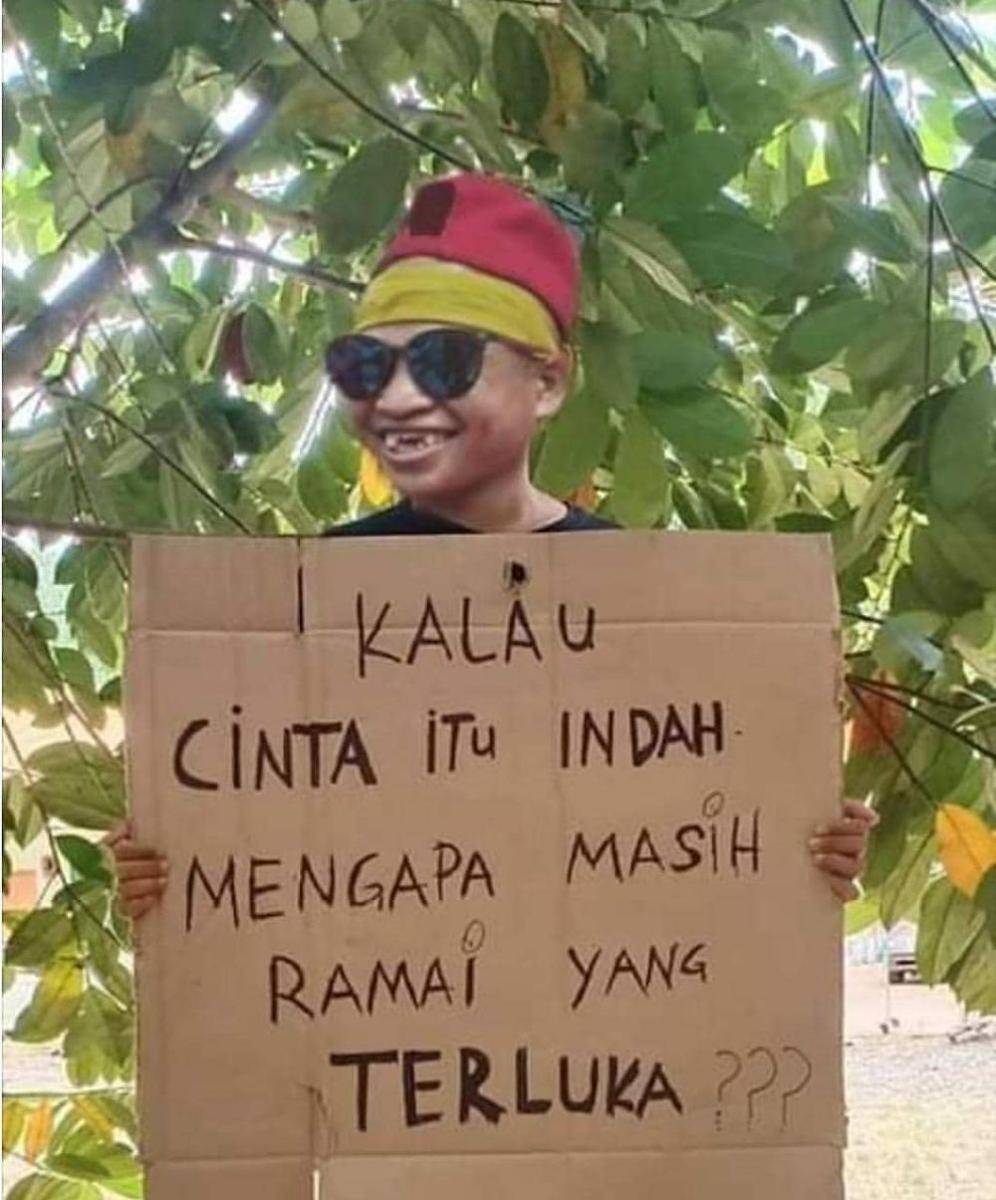 KALAU
CINTA ITU INDAH.
MENGAPA MASIH
RAMAI YANG
TERLUKA ???